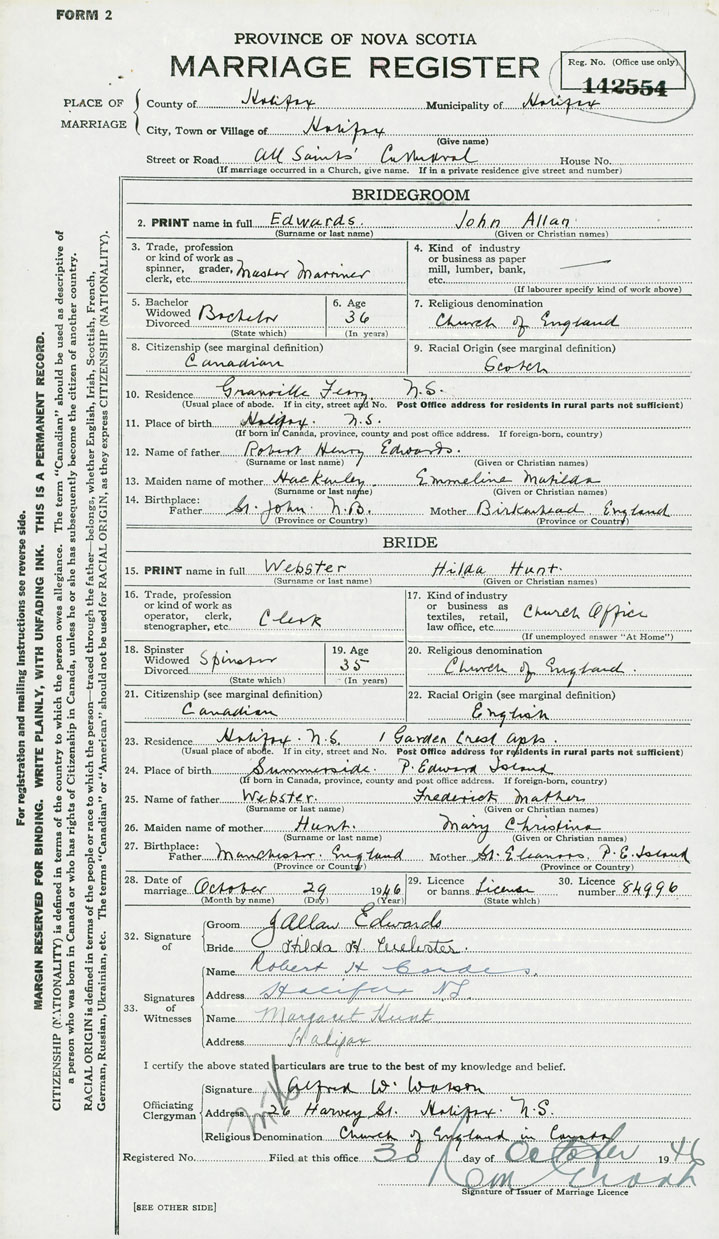 FORM 2
PROVINCE OF NOVA SCOTIA
MARRIAGE REGISTER
Reg. No. (Office use only)
142554
PLACE OF MARRIAGE
County of Halifax Municipality of Halifax
City, Town or Village of Halifax
(Give name)
Street or Road All Saints' Cathedral House No.
(If marriage occurred in a Church, give name. If in a private residence give street and number)
BRIDEGROOM
2. PRINT name in full Edwards. John Allan
(Surname or last name) (Given or Christian names)
3. Trade, profession or kind of work as spinner, grader, clerk, etc. Master Marriner
4. Kind of industry or business as paper mill, lumber, bank, etc. —
(If labourer specify kind of work above)
5. Bachelor Widowed Divorced Bachelor
(State which)
6. Age 36
(In years)
7. Religious denomination
Church of England
8. Citizenship (see marginal definition)
Canadian
9. Racial Origin (see marginal definition)
Scotch
10. Residence Granville Ferry N.S.
(Usual place of abode. If in city, street and No. Post Office address for residents in rural parts not sufficient)
11. Place of birth Halifax. N.S.
(If born in Canada, province, county and post office address. If foreign-born, country)
12. Name of father Robert Henry Edwards.
(Surname or last name) (Given or Christian names)
13. Maiden name of mother Emmeline Matilda
(Surname or last name) (Given or Christian names)
14. Birthplace:
Father St. John N.B. Mother Birkenhead, England
(Province or Country) (Province or Country)
BRIDE
15. PRINT name in full Webster Hilda Hunt.
(Surname or last name) (Given or Christian names)
16. Trade, profession or kind of work as operator, clerk, stenographer, etc. Clerk
17. Kind of industry or business as textiles, retail, law office, etc. Church Office
(If unemployed answer "At Home")
18. Spinster Widowed Divorced Spinster
(State which)
19. Age 35
(In years)
20. Religious denomination
Church of England.
21. Citizenship (see marginal definition)
Canadian
22. Racial Origin (see marginal definition)
English
23. Residence Halifax. N.S. 1 Garden Crest Apts.
(Usual place of abode. If in city, street and No. Post Office address for residents in rural parts not sufficient)
24. Place of birth Summerside. P. Edward Island
(If born in Canada, province, county and post office address. If foreign-born, country)
25. Name of father Webster. Frederick Mathers
(Surname or last name) (Given or Christian names)
26. Maiden name of mother Hunt. Mary Christina
(Surname or last name) (Given or Christian names)
27. Birthplace:
Father Manchester. England Mother St. Eleanors, P.E. Island
(Province or Country) (Province or Country)
28. Date of marriage October 29 1946
(Month by name) (Day) (Year)
29. Licence or banns License
(State which)
30. Licence number 84996
32. Signature of
Groom J Allan Edwards
Bride Hilda H. Webster.
33. Signatures of Witnesses
Name Robert H
Address Halifax NS.
Name Margaret Hunt
Address Halifax
I certify the above stated particulars are true to the best of my knowledge and belief.
Officiating Clergyman
Signature Alfred W. Watson
Address 26 Harvey St. Halifax. N.S.
Religious Denomination Church of England in Canada
Registered No. Filed at this office 30 day of October 1946
Signature of Issuer of Marriage Licence
[SEE OTHER SIDE]
For registration and mailing instructions see reverse side.
MARGIN RESERVED FOR BINDING. WRITE PLAINLY, WITH UNFADING INK. THIS IS A PERMANENT RECORD.
CITIZENSHIP (NATIONALITY) is defined in terms of the country to which the person owes allegiance. The term "Canadian" should be used as descriptive of
a person who was born in Canada or who has rights of Citizenship in Canada, unless he or she has subsequently become the citizen of another country.
RACIAL ORIGIN is defined in terms of the people or race to which the person—traced through the father—belongs, whether English, Irish, Scottish, French,
German, Russian, Ukrainian, etc. The terms "Canadian" or "American" should not be used for RACIAL ORIGIN, as they express CITIZENSHIP (NATIONALITY).